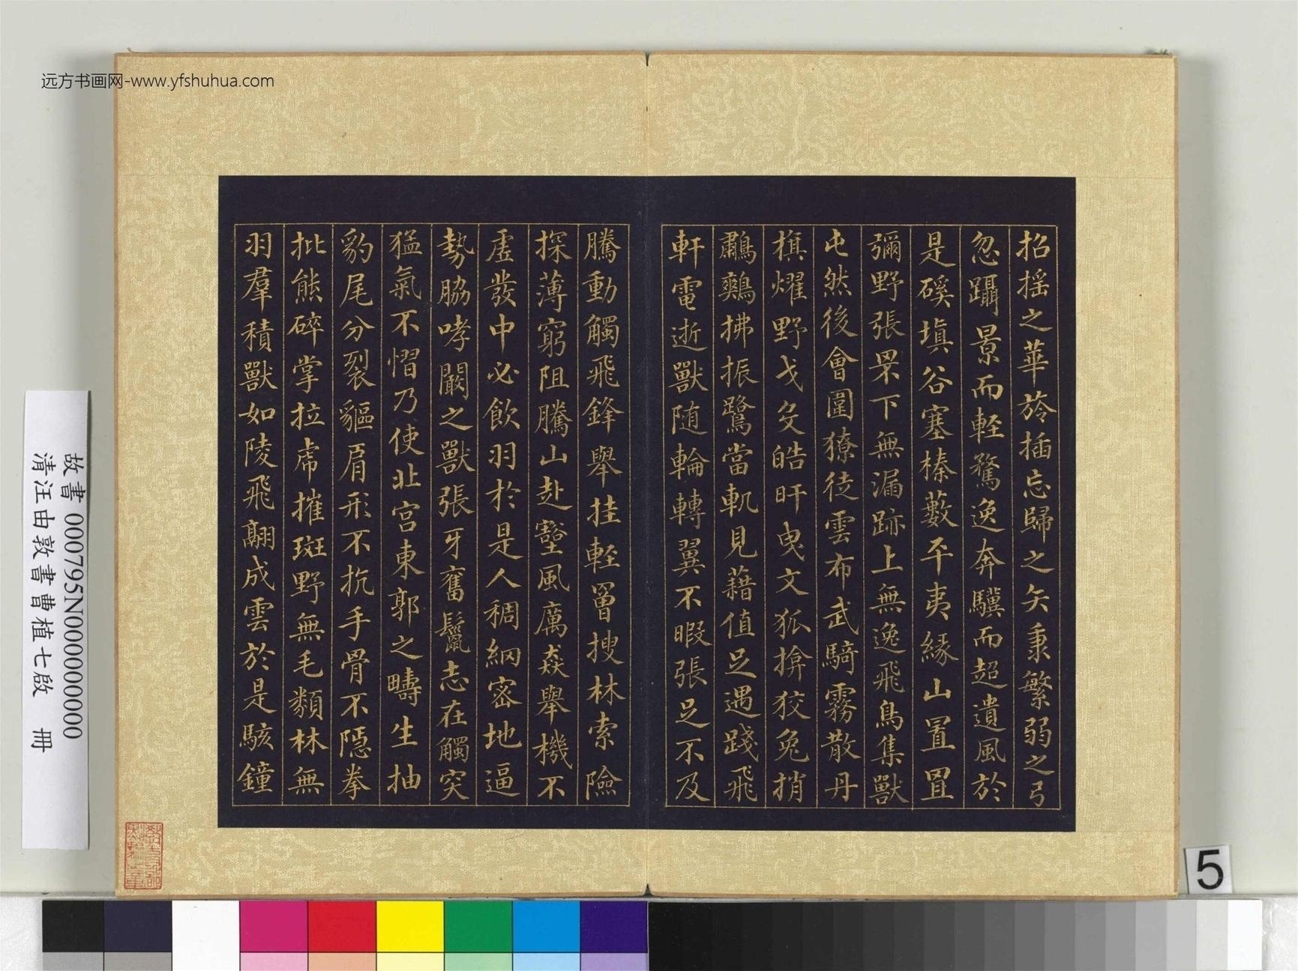 远方书画网-www.yfshuhua.com
招搖之華旍插忘歸之矢秉繁弱之弓
忽躡景而輕騖逸奔驥而超遺風於
是磎塡谷塞榛藪平夷緣山置罝
彌野張罘下無漏跡上無逸飛鳥集獸
屯然後會圍獠徒雲布武騎霧散丹
旗燿野戈殳皓旰曳文狐揜狡兔捎
鷫鷞拂振鷺當軌見藉值足遇踐飛
軒電逝獸随輪轉翼不暇張足不及
騰動觸飛鋒舉挂輕罾搜林索險
探薄窮阻騰山赴壑風厲焱舉機不
虛發中必飲羽於是人稠網密地逼
勢脇哮闞之獸張牙奮鬣志在觸突
猛氣不慴乃使北宫東郭之疇生抽
豹尾分裂貙肩形不抗手骨不隱拳
批熊碎掌拉虎摧斑野無毛類林無
羽羣積獸如陵飛翮成雲於是駭鐘
故書 000795N000000000
清汪由敦書曹植七啟 冊
5